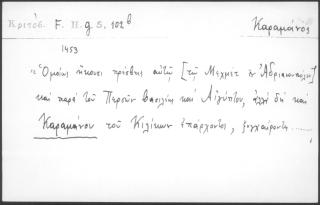 Κριτόβ. F. H. g. 5, 102 b Καραμάνος
1453
"Ὁμοίως ἥκουσι πρέσβεις αὐτῷ [τῷ Μεχμὲτ ἐν Ἀδριανουπόλει]
καὶ παρὰ τοῦ Περσῶν βασιλέως καὶ Αἰγύπτου, ἀλλὰ δὴ καὶ
Καραμάνου τοῦ Κιλίκων ἐπάρχοντος, ξυγχαίροντες .....